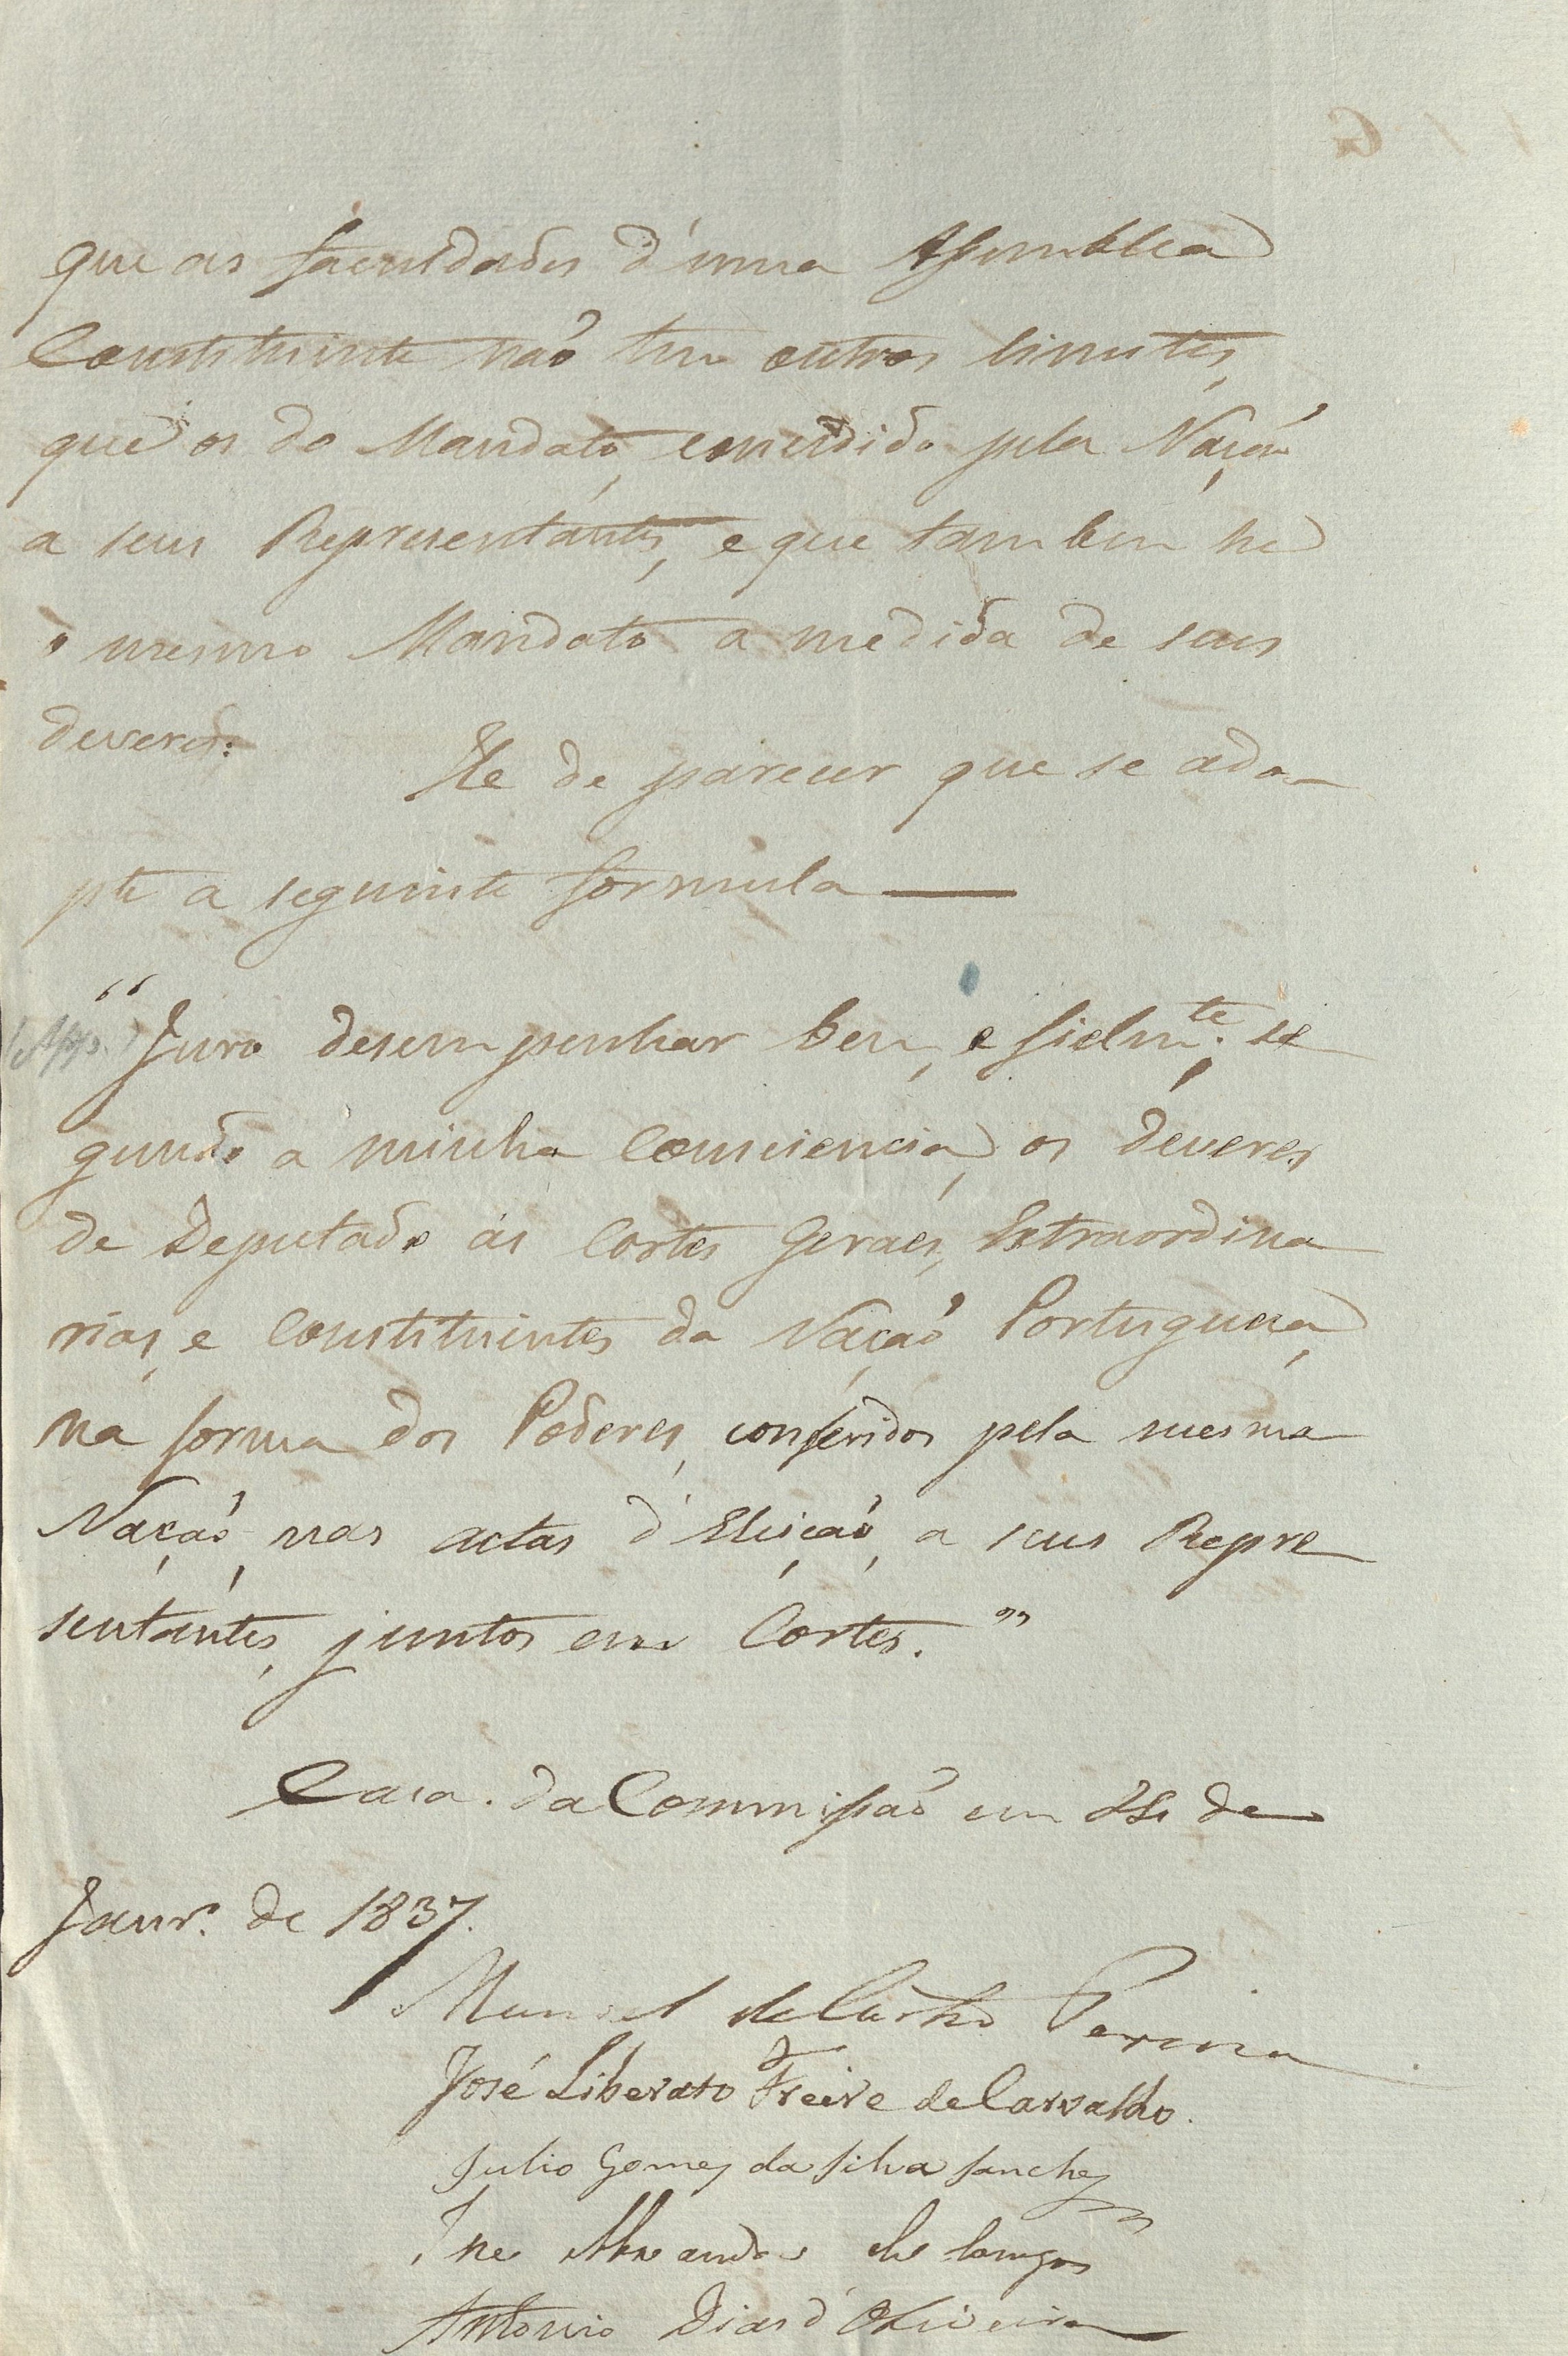 que as faculdades d'uma Assemblea
Constituinte não tem outros limites,
que os do Mandato, concedido pela Nação
a seus Representantes, e que tambem he
o mesmo Mandato a medida de seus
deveres:
He de parecer que se ado-
pte a seguinte formula —
"Juro desempenhar bem, e fielmte. se
gundo a minha Consciencia, os deveres
de Deputado ás Cortes Geraes, Extraordina
rias, e Constituintes da Nação Portugueza,
na forma dos Poderes, conferidos pela mesma
Nação, nas actas d'Eleição, a seus Repre
sentantes, juntos em Cortes."
Casa da Commissão em de
Janro. de 1837.
Manoel de Castro Pereira
José Liberato Freire de Carvalho.
Julio Gomes da Silva Sanches
José Alexandre de Campos
Antonio Dias d'Oliveira